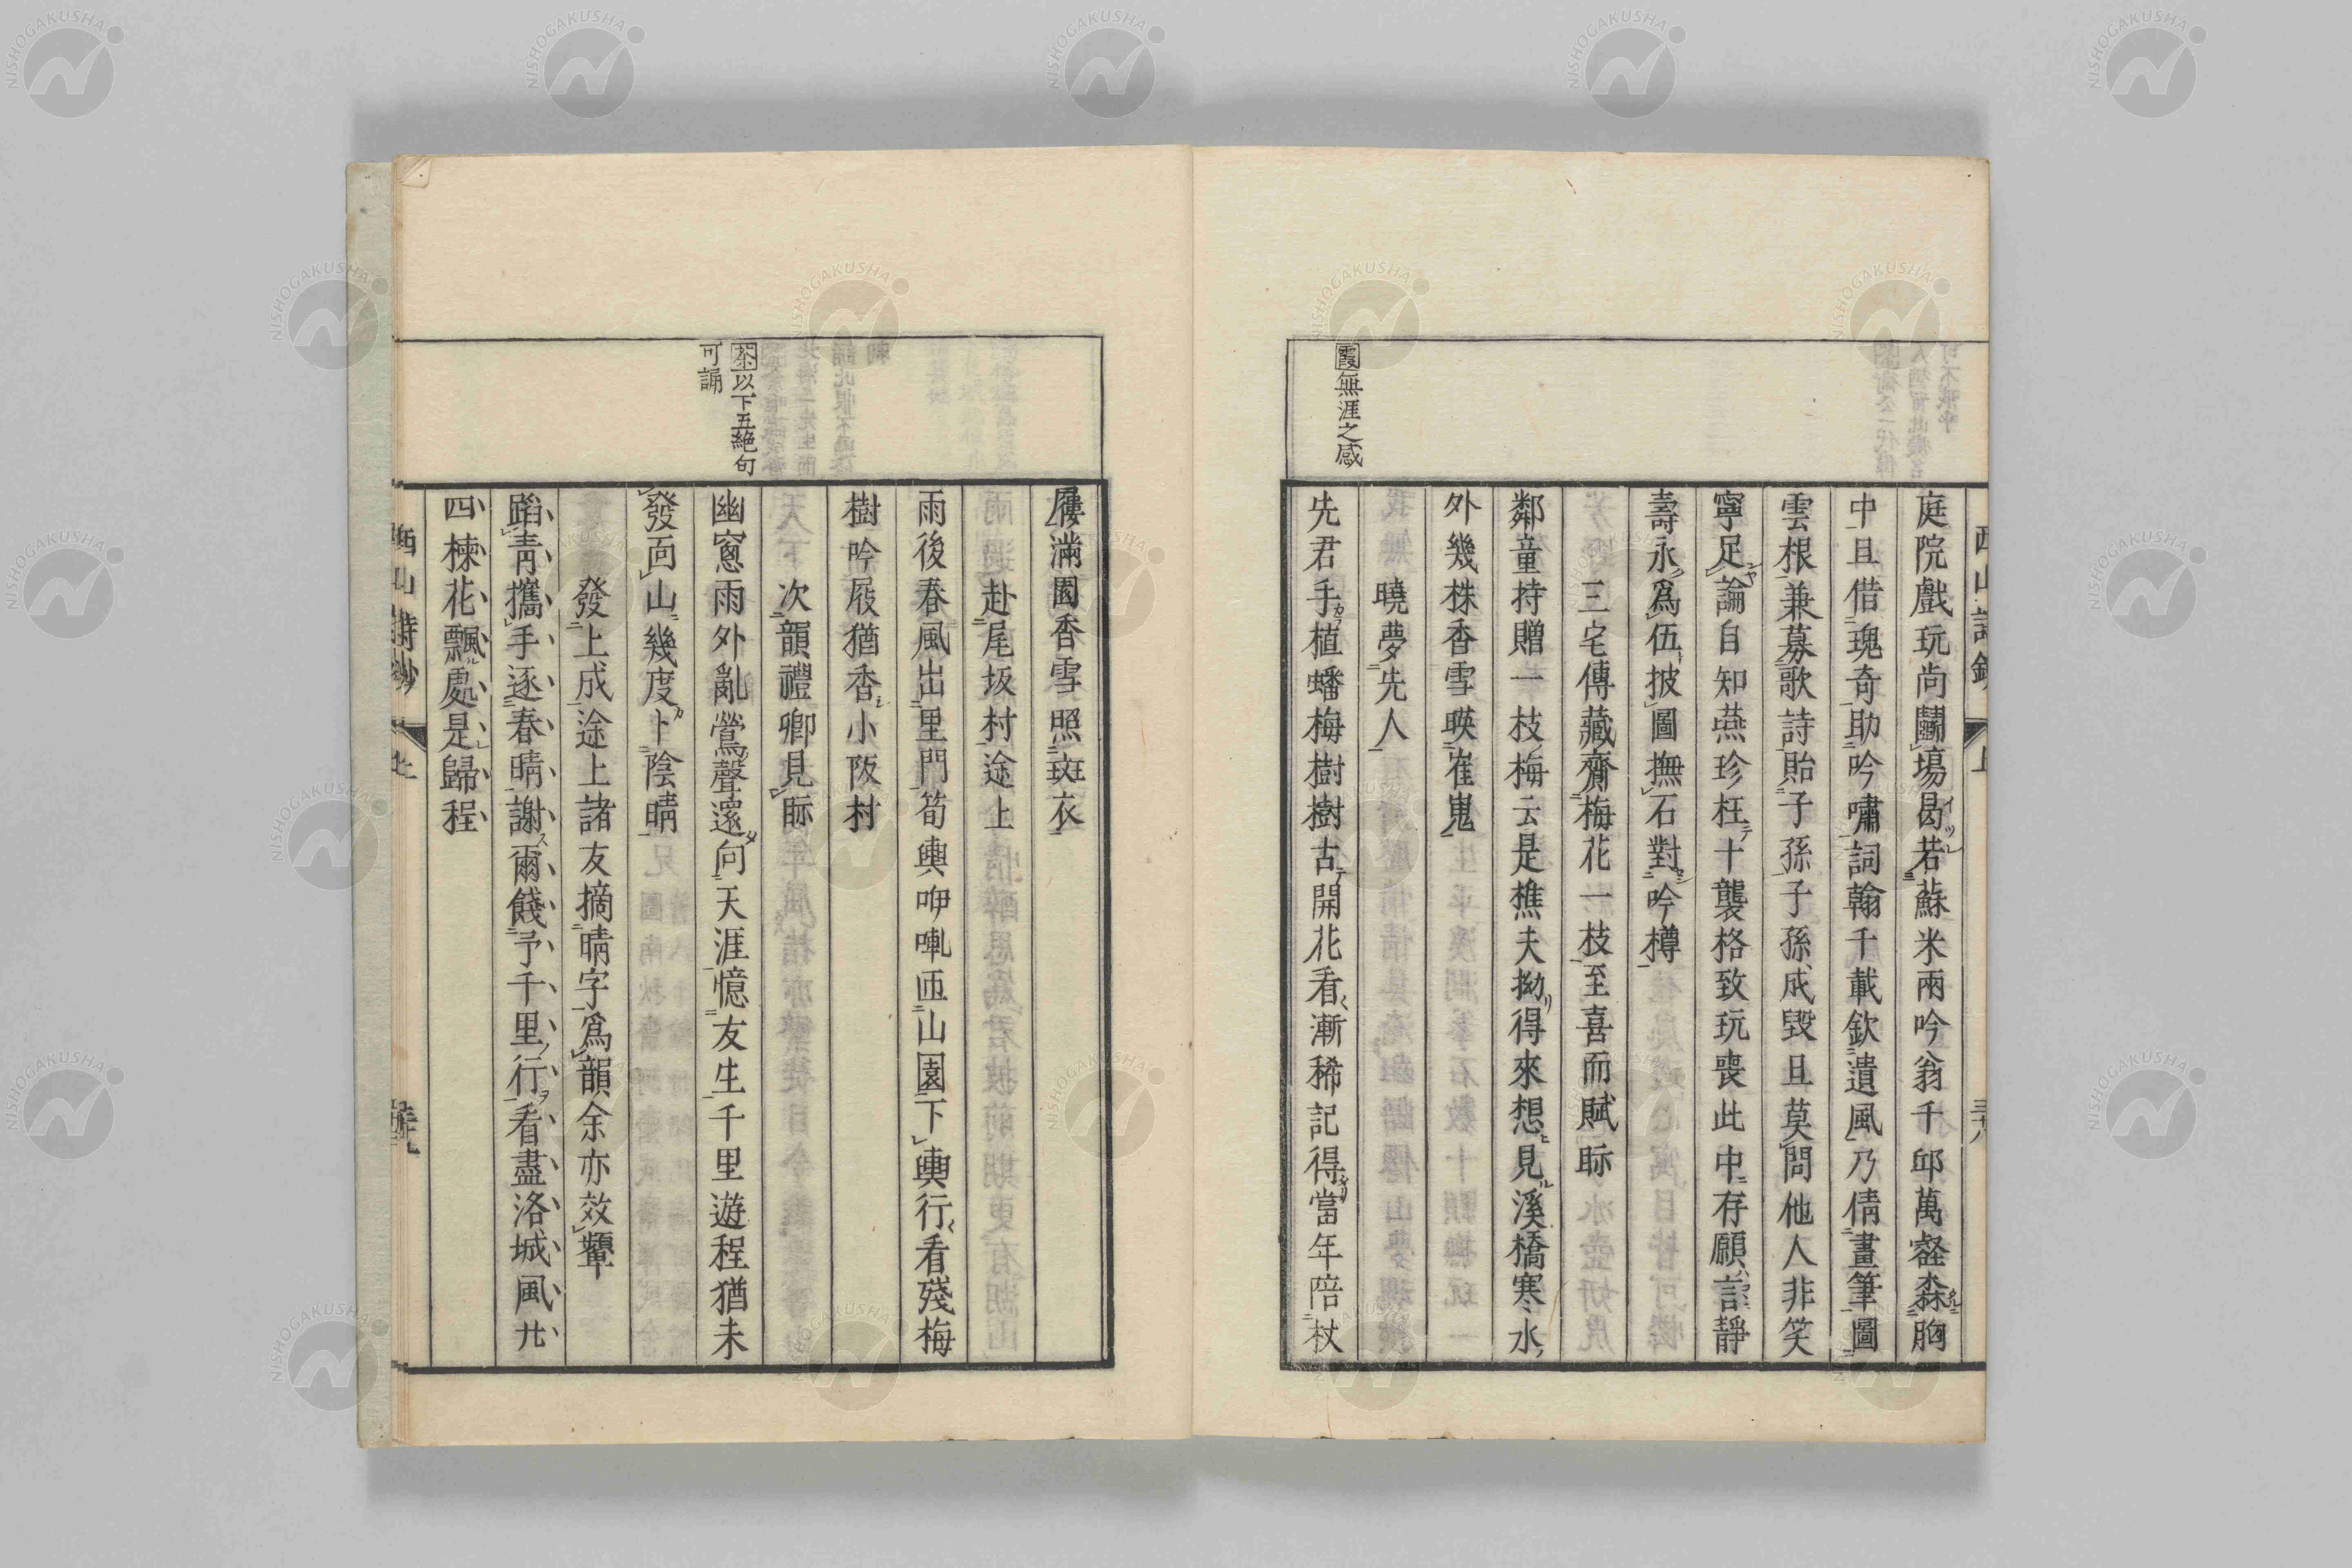 庭院戲玩尚鬭場曷若蘇米兩吟翁千邱萬壑森胸
中且借瑰奇助吟嘯詞翰千載欽遺風乃倩畫筆圖
雲根兼募歌詩貽子孫子孫成毀且莫問他人非笑
寧足論自知燕珍枉十襲格致玩喪此中存願言靜
壽永爲伍披圖撫石對吟樽
三宅傳藏齋梅花一枝至喜而賦眎
鄰童持贈一枝梅云是樵夫拗得來想見溪橋寒水
外幾株香雪暎崔嵬
曉夢先人
霞無涯之感
先君手植蟠梅樹樹古開花看漸稀記得當年陪杖
屨滿園香雪照斑衣
赴尾坂村途上
雨後春風出里門筍輿咿喇匝山園下輿行看殘梅
樹吟屐猶香小阪村
次韻禮卿見眎
茶以下五絕句
可誦
幽窓雨外亂鶯聲遠向天涯憶友生千里遊程猶未
發面山幾度卜陰晴
發上成途上諸友摘晴字爲韻余亦效顰
蹈靑攜手逐春晴謝爾餞予千里行看盡洛城風廿
四楝花飄處是歸程
西山詩鈔
上
NISHOGAKUSHA